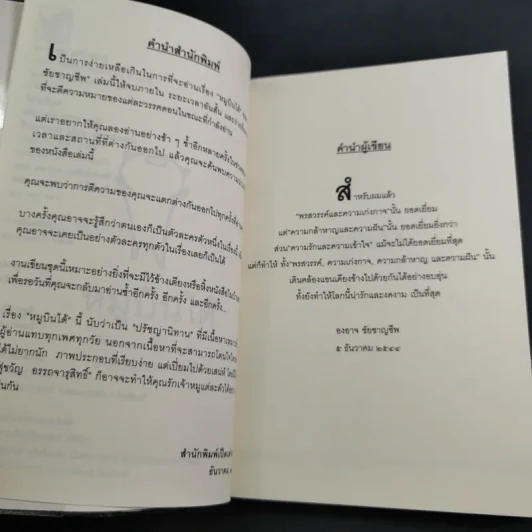 คำนำสำนักพิมพ์
เป็นการง่ายเหลือเกินในการที่จะอ่านเรื่อง "หมูบินได้"
ชัยชาญชีพ" เล่มนี้ให้จบภายใน ระยะเวลาอันสั้น และ
ที่จะตีความหมายของแต่ละวรรคตอนในขณะที่กำลังอ่าน
แต่เราอยากให้คุณลองอ่านอย่างช้า ๆ ซ้ำอีกหลายครั้ง
เวลาและสถานที่ที่ต่างกันออกไป แล้วคุณจะค้นพบความ
ของหนังสือเล่มนี้
คุณจะพบว่าการตีความของคุณจะแตกต่างกันออกไปทุกครั้งที่
บางครั้งคุณอาจจะรู้สึกว่าตนเองก็เป็นตัวละครตัวหนึ่งในเรื่องนี้
คุณอาจจะเคยเป็นอย่างตัวละครทุกตัวในเรื่องเลยก็เป็นได้
งานเขียนชุดนี้เหมาะอย่างยิ่งที่จะมีไว้ข้างเตียงหรือหิ้งหนังสือ
เพื่อรอวันที่คุณจะกลับมาอ่านซ้ำอีกครั้ง อีกครั้ง และอีกครั้ง...
เรื่อง "หมูบินได้" นี้ นับว่าเป็น "ปรัชญานิทาน" ที่มีเนื้อหา
ผู้อ่านแทบทุกเพศทุกวัย นอกจากเนื้อหาที่จะสามารถโดนใจ
ได้ไม่ยากนัก ภาพประกอบที่เรียบง่าย แต่เปี่ยมไปด้วยเสน่ห์
สุขวัญ อรรถจารุสิทธิ์" ก็อาจจะทำให้คุณรักเจ้าหมูแต่ละตัวได้
กัน
สำนักพิมพ์
ธันวาคม
คำนำผู้เขียน
สำหรับผมแล้ว
"พรสวรรค์และความเก่งกาจ"นั้น ยอดเยี่ยม
แต่"ความกล้าหาญและความฝัน"นั้น ยอดเยี่ยมยิ่งกว่า
ส่วน"ความรักและความเข้าใจ" แม้จะไม่ได้ยอดเยี่ยมที่สุด
แต่ก็ทำให้ ทั้ง"พรสวรรค์, ความเก่งกาจ, ความกล้าหาญ และความฝัน" นั้น
เดินคล้องแขนเคียงข้างไปด้วยกันได้อย่างอบอุ่น
ทั้งยังทำให้โลกนี้น่ารักและงดงาม เป็นที่สุด
องอาจ ชัยชาญชีพ
๕ ธันวาคม ๒๕๔๔